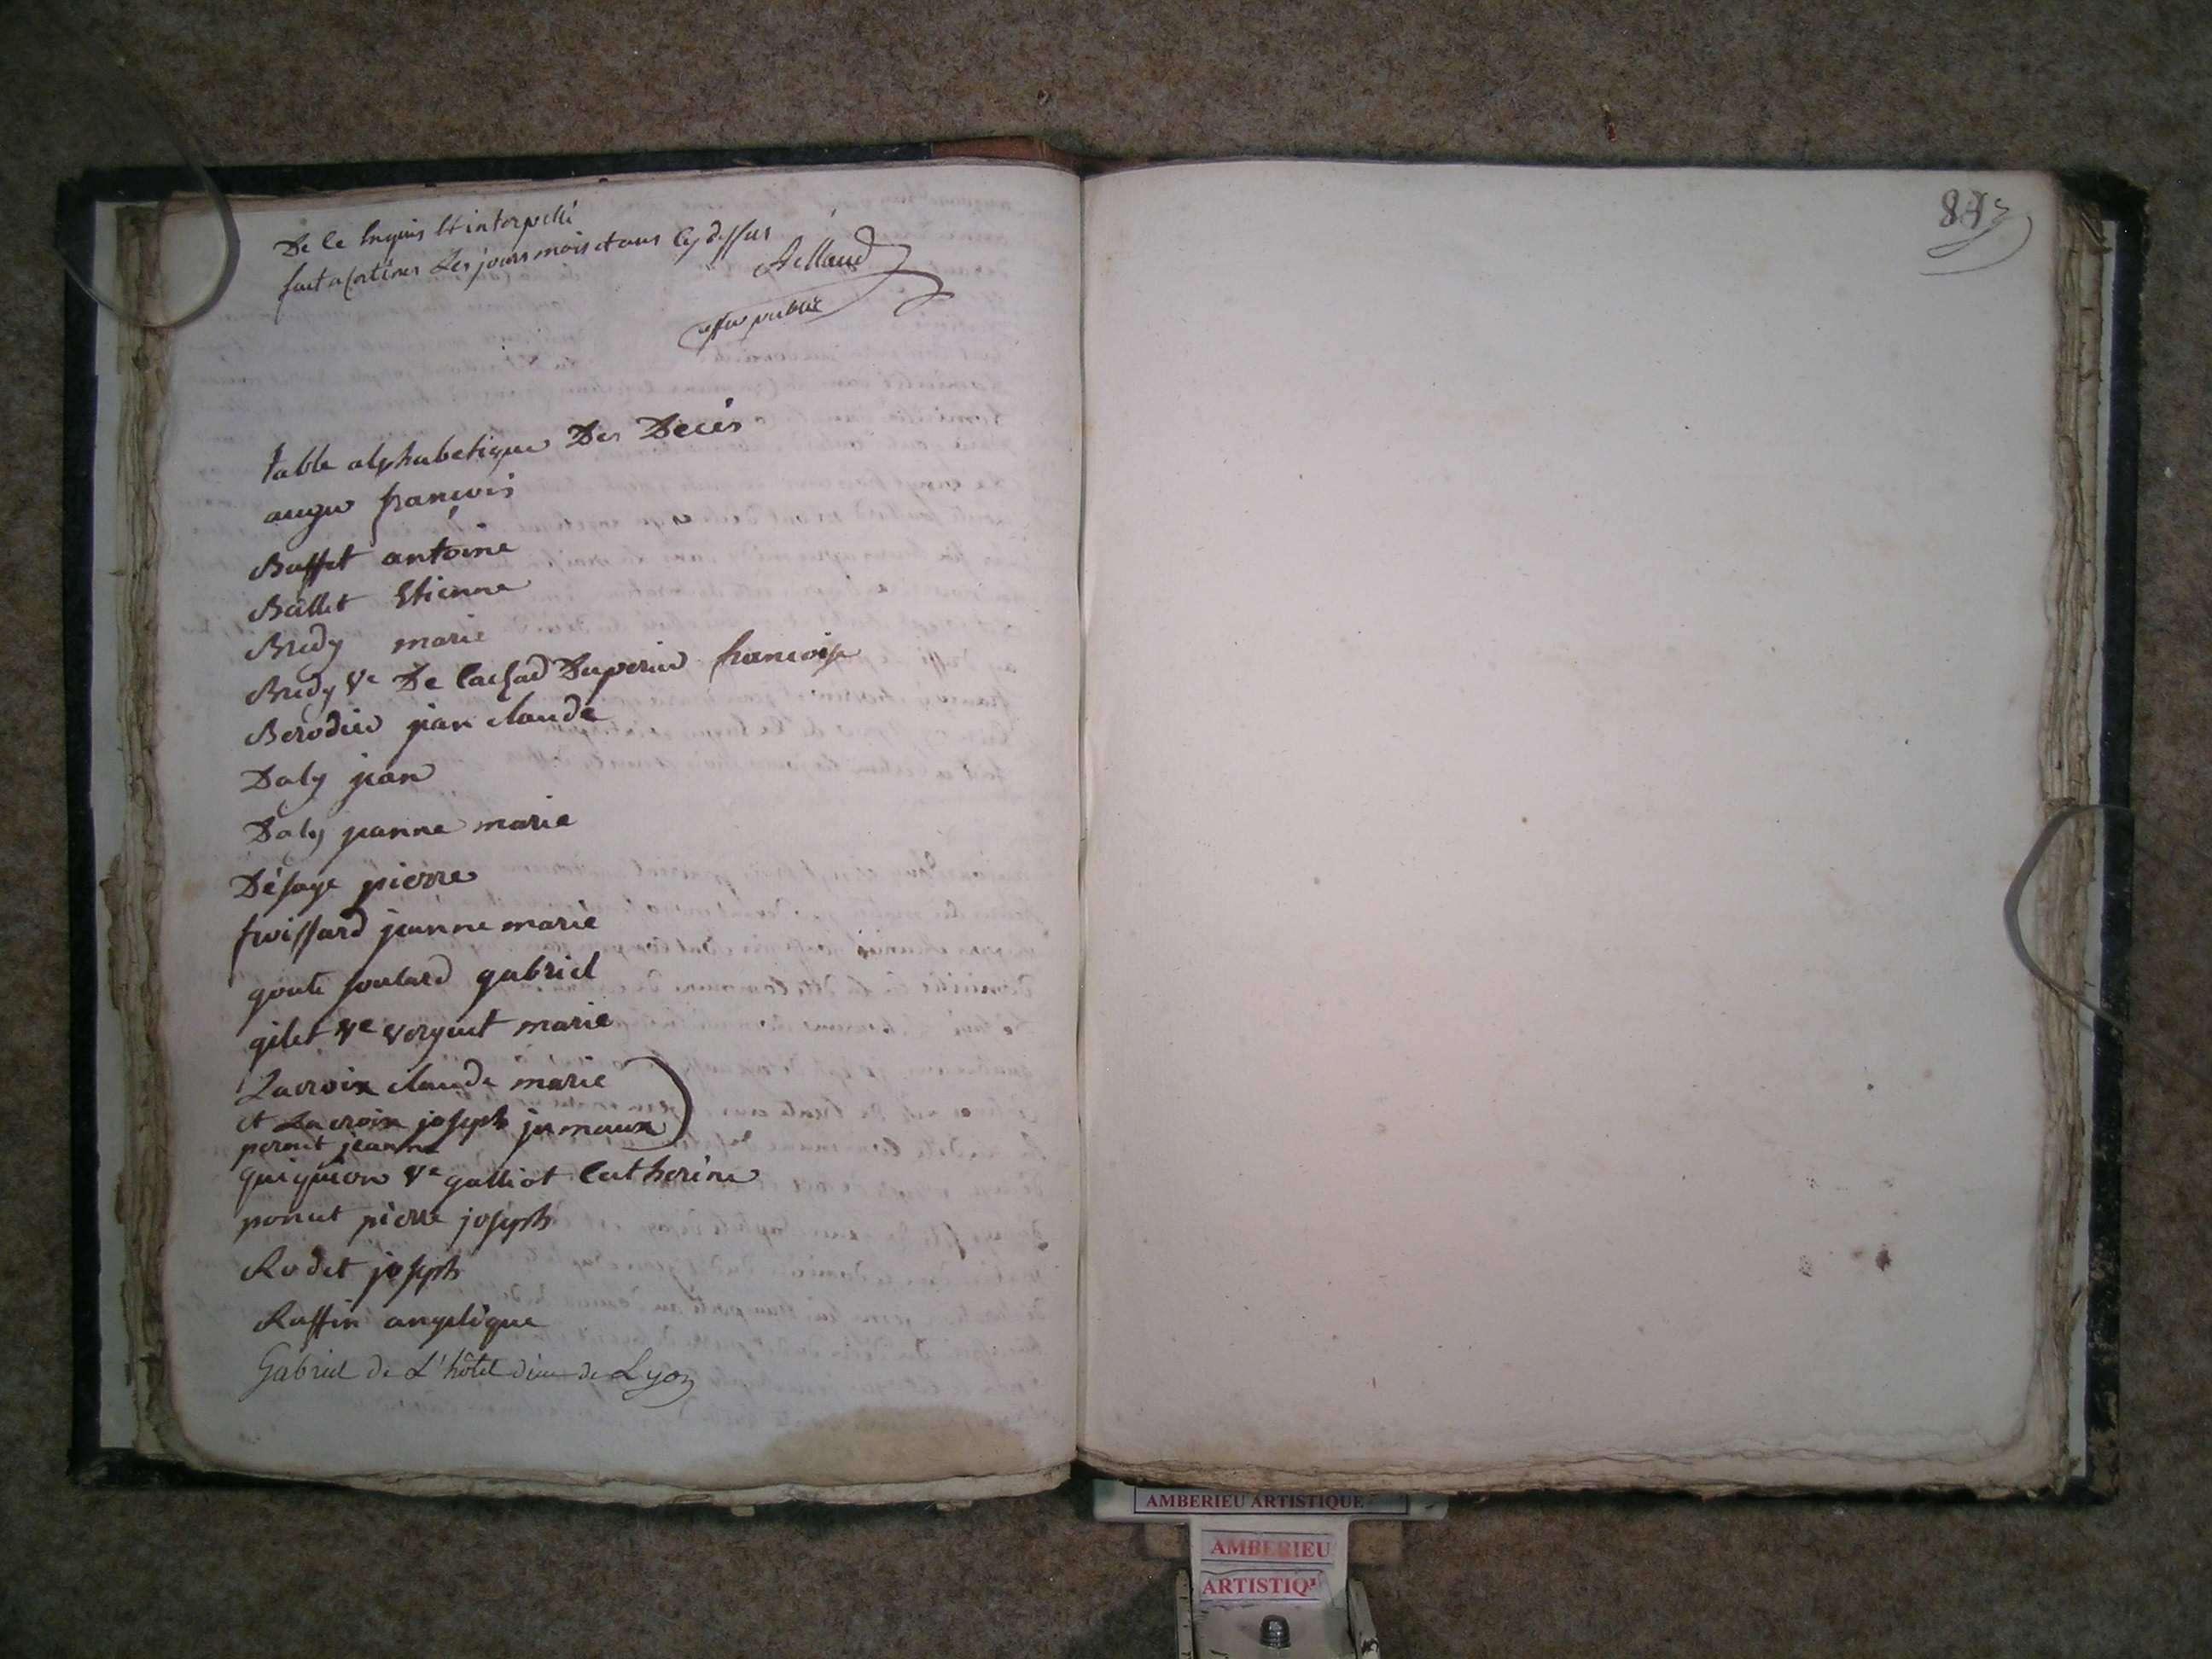 De ce Enquis Et interpellé
fait a Cortines Les jours mois et ans Cy dessus
officier public
table alphabetique Des Decés
auger françois
Buffet antoine
Ballet Etienne
Bredy marie
Bredy Ve De Cachard Duperier francoise
Berodier jean claude
Daly jean
Daly jeanne marie
Désage pierre
froissard jeanne marie
goute foulard gabriel
gilet Ve verguet marie
Lacroix claude marie
et Lacroix joseph jumaux
perrut jeanne
guiguion Ve galliot Catherine
ponut pierre joseph
Rodet joseph
Ruffin angelique
Gabriel de L'hôtel dieu de Lyon
AMBERIEU ARTISTIQUE
AMBERIEU
ARTISTIQ